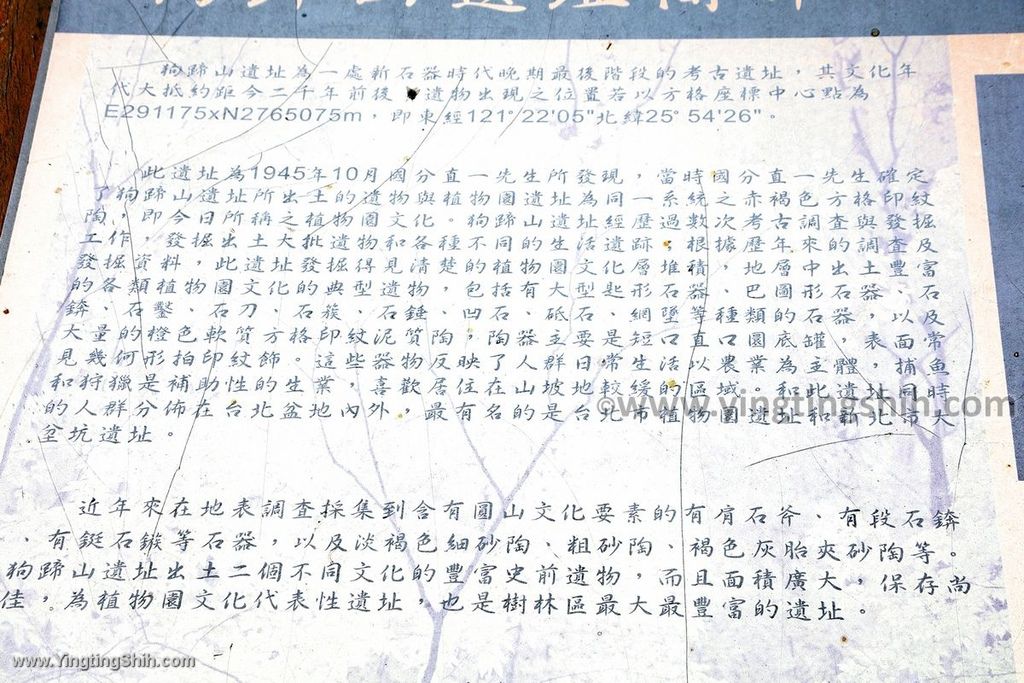 狗蹄山遺址簡介
狗蹄山遺址為一處新石器時代晚期最後階段的考古遺址，其文化年
代大抵約距今二千年前後，遺物出現之位置若以方格座標中心點為
E291175xN2765075m，即東經121°22'05"北緯25°54'26"。
此遺址為1945年10月國分直一先生所發現，當時國分直一先生確定
了狗蹄山遺址所出土的遺物與植物園遺址為同一系統之赤褐色方格印紋
陶，即今日所稱之植物園文化。狗蹄山遺址經歷過數次考古調查與發掘
工作，發掘出土大批遺物和各種不同的生活遺跡；根據歷年來的調查及
發掘資料，此遺址發掘得見清楚的植物園文化層堆積，地層中出土豐富
的各類植物園文化的典型遺物，包括有大型匙形石器、巴圖形石器、石
錛、石鑿、石刀、石簇、石錘、凹石、砥石、網墜等種類的石器，以及
大量的橙色軟質方格印紋泥質陶，陶器主要是短口直口圜底罐，表面常
見幾何形拍印紋飾。這些器物反映了人群日常生活以農業為主體，捕魚
和狩獵是補助性的生業，喜歡居住在山坡地較緩的區域。和此遺址同時
的人群分佈在台北盆地內外，最有名的是台北市植物園遺址和新北市大
坌坑遺址。
近年來在地表調查採集到含有圓山文化要素的有肩石斧、有段石錛
、有鋌石鏃等石器，以及淡褐色細砂陶、粗砂陶、褐色灰胎夾砂陶等。
狗蹄山遺址出土二個不同文化的豐富史前遺物，而且面積廣大，保存尚
佳，為植物園文化代表性遺址，也是樹林區最大最豐富的遺址。
©www.yingtingshih.com
www.YingtingShih.com